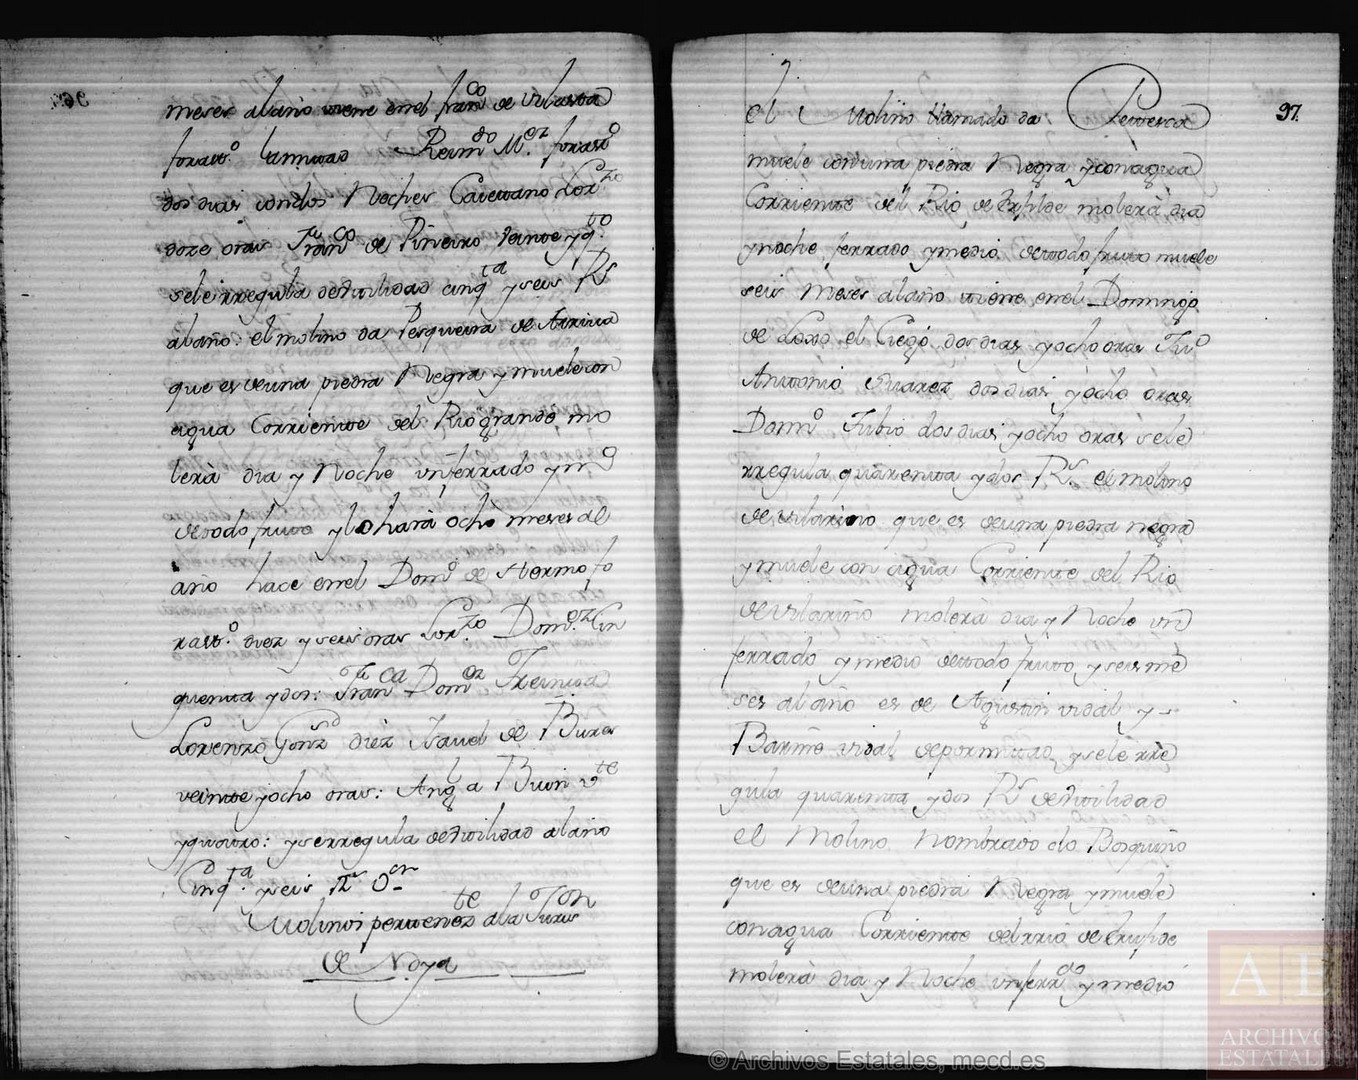 meses al año tiene enel fran.co de Vilasta
forast.o la mitad Reim.do M.ez forast.o
dos dias con dos Noches Caietano Lor.zo
doze oras Fran.co de Piñeiro veinte y q.to
sele rregula de Utilidad cinq.ta y seis R.s
al año: el molino da Pesqueira de Arriva
que es de una piedra Negra y muele con
agua Corriente del Rio grande mo
lerà dia y Noche un ferrado y m.o
de todo fruto y lo harà ocho meses al
año hace enel Dom.o de Stermo fo
rast.o diez y seis oras Lor.zo Dom.ez Cin
quenta y dos: Fran.ca Dom.ez
Lorenzo Gonz. diez Isavel de Bures
veinte y ocho oras: Ang.la Buin v.te
y quatro: y se rregula de Utilidad al año
Cinq.ta y seis R.s v.on
Molinos pertenez.te ala Juris.on
de Noya
97.
El Molino llamado da
muele con una piedra Negra y con agua
Corriente del Rio de molerà dia
y noche ferrado y medio de todo fruto muele
seis meses al año tiene enel Domingo
de Loxo el Ciego dos dias y ocho oras Ju.o
Antonio Suarez dos dias y ocho oras
Dom.o Tubio dos dias y ocho oras sele
rregula quarenta y dos R.s el molino
de vilarino que es de una piedra negra
y muele con agua Corriente del Rio
de vilariño molerà dia y Noche un
ferrado y medio de todo fruto y seis me
ses al año es de Agustin vidal y
Barme vidal de por mitad y sele rre
gula quarenta y dos R.s de Utilidad
el Molino Nombrado do Bosquiño
que es de una piedra Negra y muele
con agua Corriente del rrio de
molerà dia y Noche un ferr.do y medio
© Archivos Estatales, mecd.es
AE
ARCHIVOS
ESTATALES